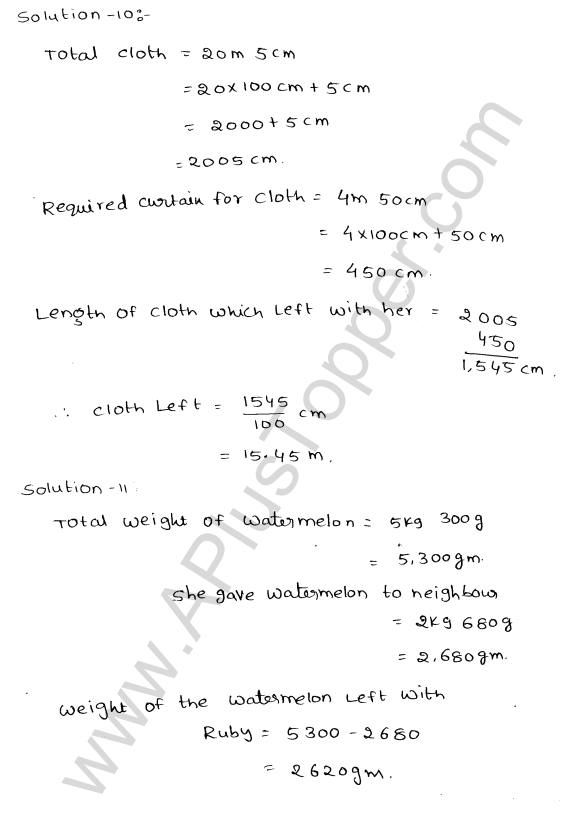 Solution -10:-
Total cloth = 20m 5cm
= 20×100cm + 5cm
= 2000 + 5cm
= 2005cm.
Required curtain for cloth = 4m 50cm
= 4×100cm + 50cm
= 450cm.
Length of cloth which left with her = 2005
450
1,545 cm.
∴ cloth Left = 1545/100 cm
= 15.45 m.
Solution -11:
Total weight of watermelon = 5kg 300g
= 5,300gm.
She gave watermelon to neighbour
= 2kg 680g
= 2,680gm.
Weight of the watermelon left with
Ruby = 5300 - 2680
= 2620gm.
www.APlusTopper.com